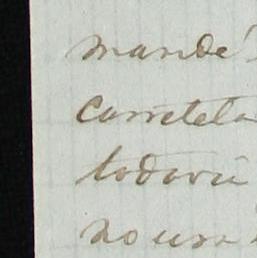 mandé
carretela
todaví
no usa